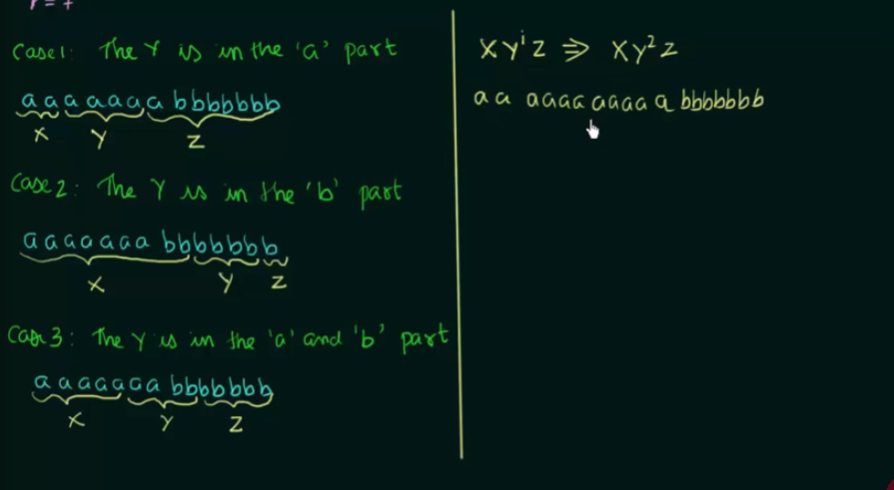 P = 7
Case1: The Y is in the 'a' part
a a a a a a a b b b b b b b
X Y Z
Case 2: The Y is in the 'b' part
a a a a a a a b b b b b b b
X Y Z
Case 3: The Y is in the 'a' and 'b' part
a a a a a a a b b b b b b b
X Y Z
X Yⁱ Z ⇒ X Y² Z
a a a a a a a a a a a b b b b b b b